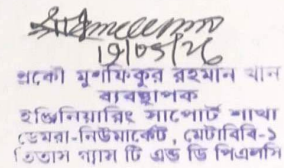 ১৭/০৫/২৬
প্রকৌ মুশফিকুর রহমান খান
ব্যবস্থাপক
ইঞ্জিনিয়ারিং সাপোর্ট শাখা
ডেমরা-নিউমার্কেট, মেটাবিবি-১
তিতাস গ্যাস টি এন্ড ডি পিএলসি